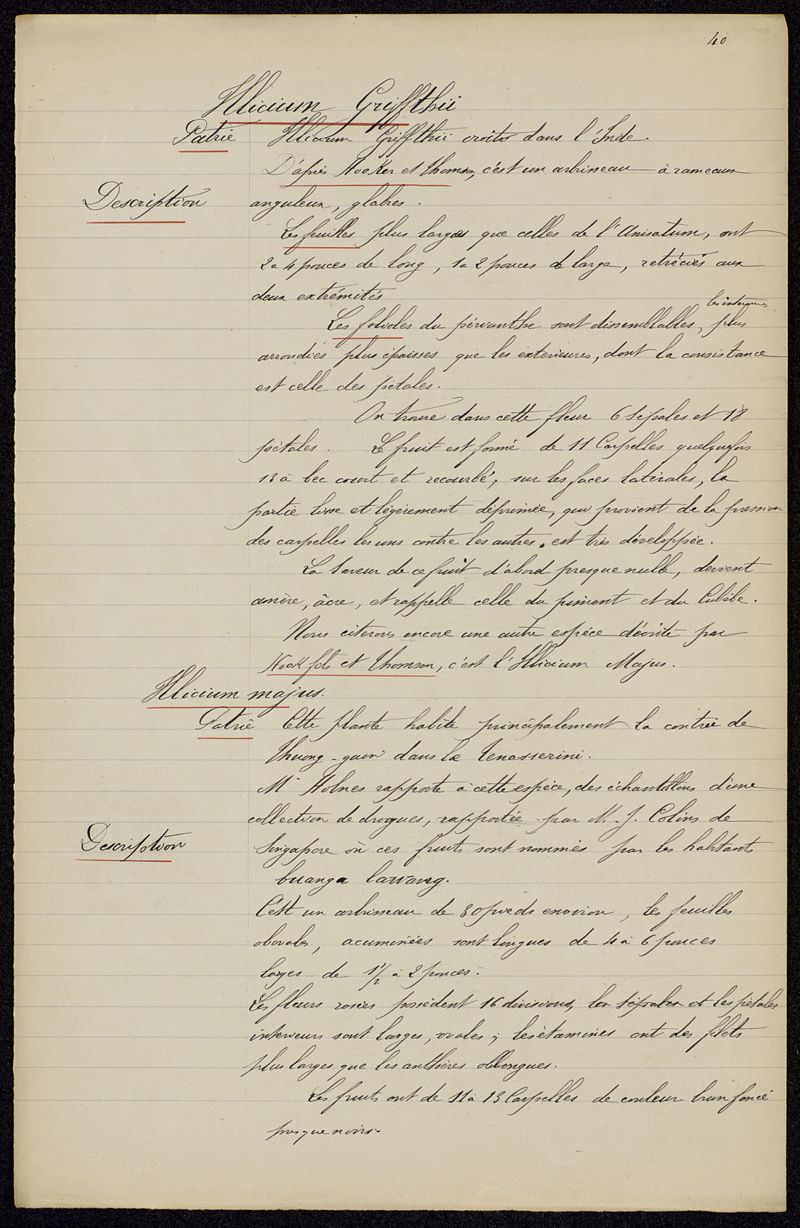 40
Illicium Griffthii
Patrie Illicium Griffthii croits dans l'Inde
D'après Hooker et Thomson, c'est un arbrisseau à rameaux
Description anguleux, glabres.
Les feuilles plus larges que celles de l'Anisatum, ont
2 à 4 pouces de long, 1 à 2 pouces de large, retrécies aux
deux extrémités
Les folioles du périanthe sont dissemblables, les internes plus
arrondies plus épaisses que les exterieures, dont la consistance
est celle des pétales.
On trouve dans cette fleur 6 sépales et 18
pétales. Le fruit est formé de 11 Carpelles quelquefois
13 à bec court et recourbé, sur les faces latérales, la
partie lisse et légèrement déprimée, qui provient de la pression
des carpelles les uns contre les autres, est très développée.
La saveur de ce fruit d'abord presque nulle, devient
amère, âcre, et rappelle celle du piment et du Cubèbe.
Nous citerons encore une autre espèce décrite par
Hook fils et Thomson, c'est l'Illicium Majus.
Illicium majus.
Patrie Cette plante habite principalement la contrée de
Thuong-gain dans le Tenasserini.
Mr Holmes rapporte à cette espèce, des échantillons d'une
collection de drogues, rapportée par M. J. Colins de
Description Singapore où ces fruits sont nommés par les habitants
buanga lawang.
C'est un arbrisseau de 30 pieds environ, les feuilles
obovales, acuminées sont longues de 4 à 6 pouces
larges de 1 1/2 à 2 pouces.
Les fleurs rosées possèdent 16 divisions, les sépales et les pétales
interieurs sont larges, ovales; les étamines ont des filets
plus larges que les anthères oblongues.
Les fruits ont de 11 à 13 Carpelles de couleur brun foncé
presque noirs.